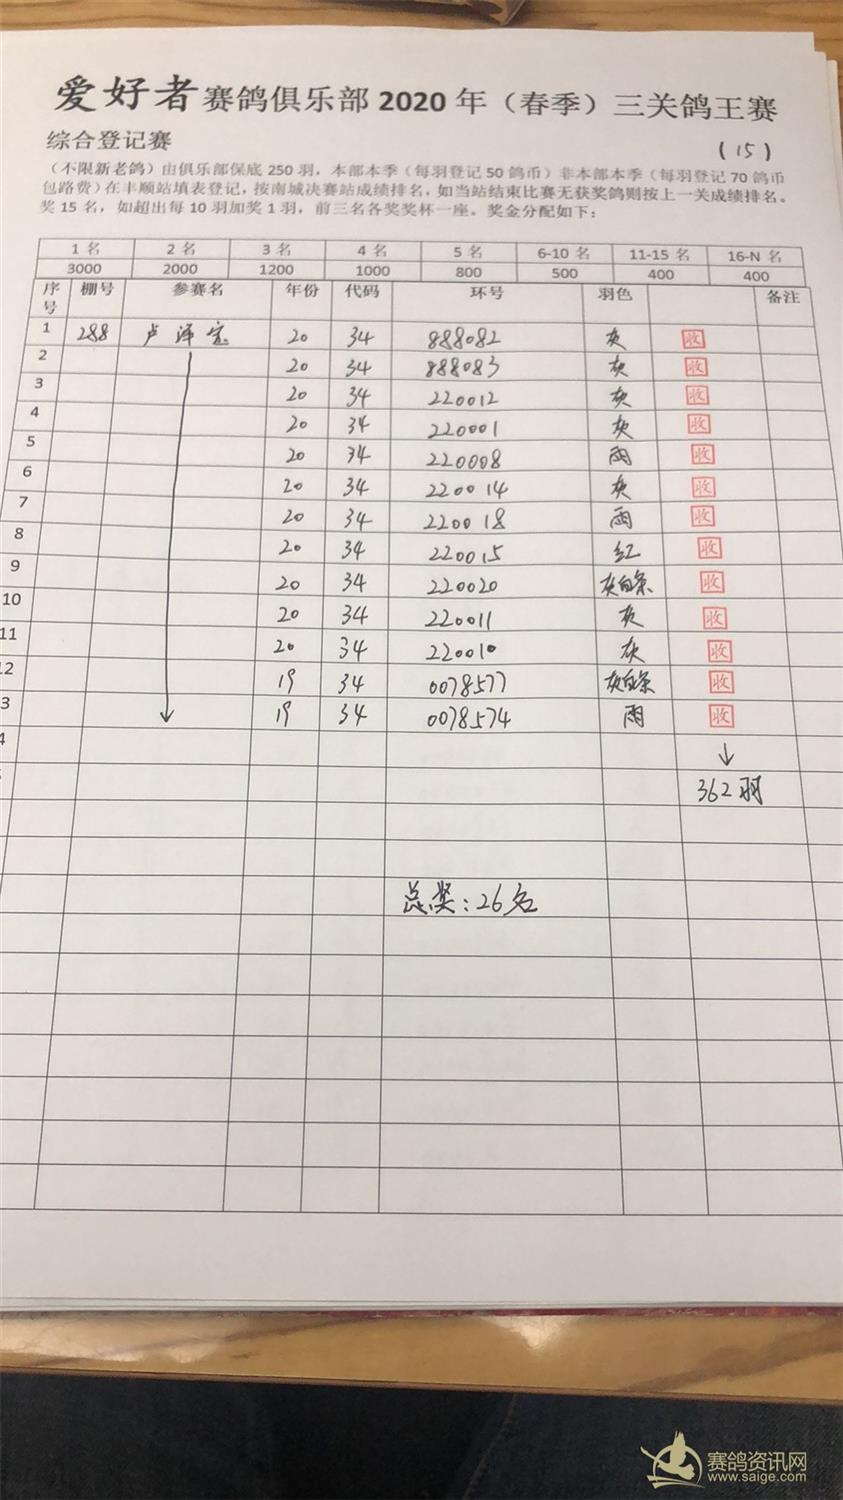 爱好者赛鸽俱乐部2020年（春季）三关鸽王赛
综合登记赛 (15)
（不限新老鸽）由俱乐部保底250羽，本部本季（每羽登记50鸽币）非本部本季（每羽登记70鸽币
包路费）在丰顺站填表登记，按南城决赛站成绩排名，如当站结束比赛无获奖鸽则按上一关成绩排名。
奖15名，如超出每10羽加奖1羽，前三名各奖奖杯一座。奖金分配如下：
1名 2名 3名 4名 5名 6-10名 11-15名 16-N名
3000 2000 1200 1000 800 500 400 400
序号 棚号 参赛名 年份 代码 环号 羽色 备注
1 288 卢泽宝 20 34 888082 灰 收
2 20 34 888083 灰 收
3 20 34 220012 灰 收
4 20 34 220001 灰 收
5 20 34 220008 雨 收
6 20 34 220014 灰 收
7 20 34 220018 雨 收
8 20 34 220015 红 收
9 20 34 220020 灰白条 收
10 20 34 220011 灰 收
11 20 34 220010 灰 收
12 19 34 0078577 灰白条 收
3 19 34 0078574 雨 收
4 ↓
362羽
总奖：26名
赛鸽资讯网
www.saige.com